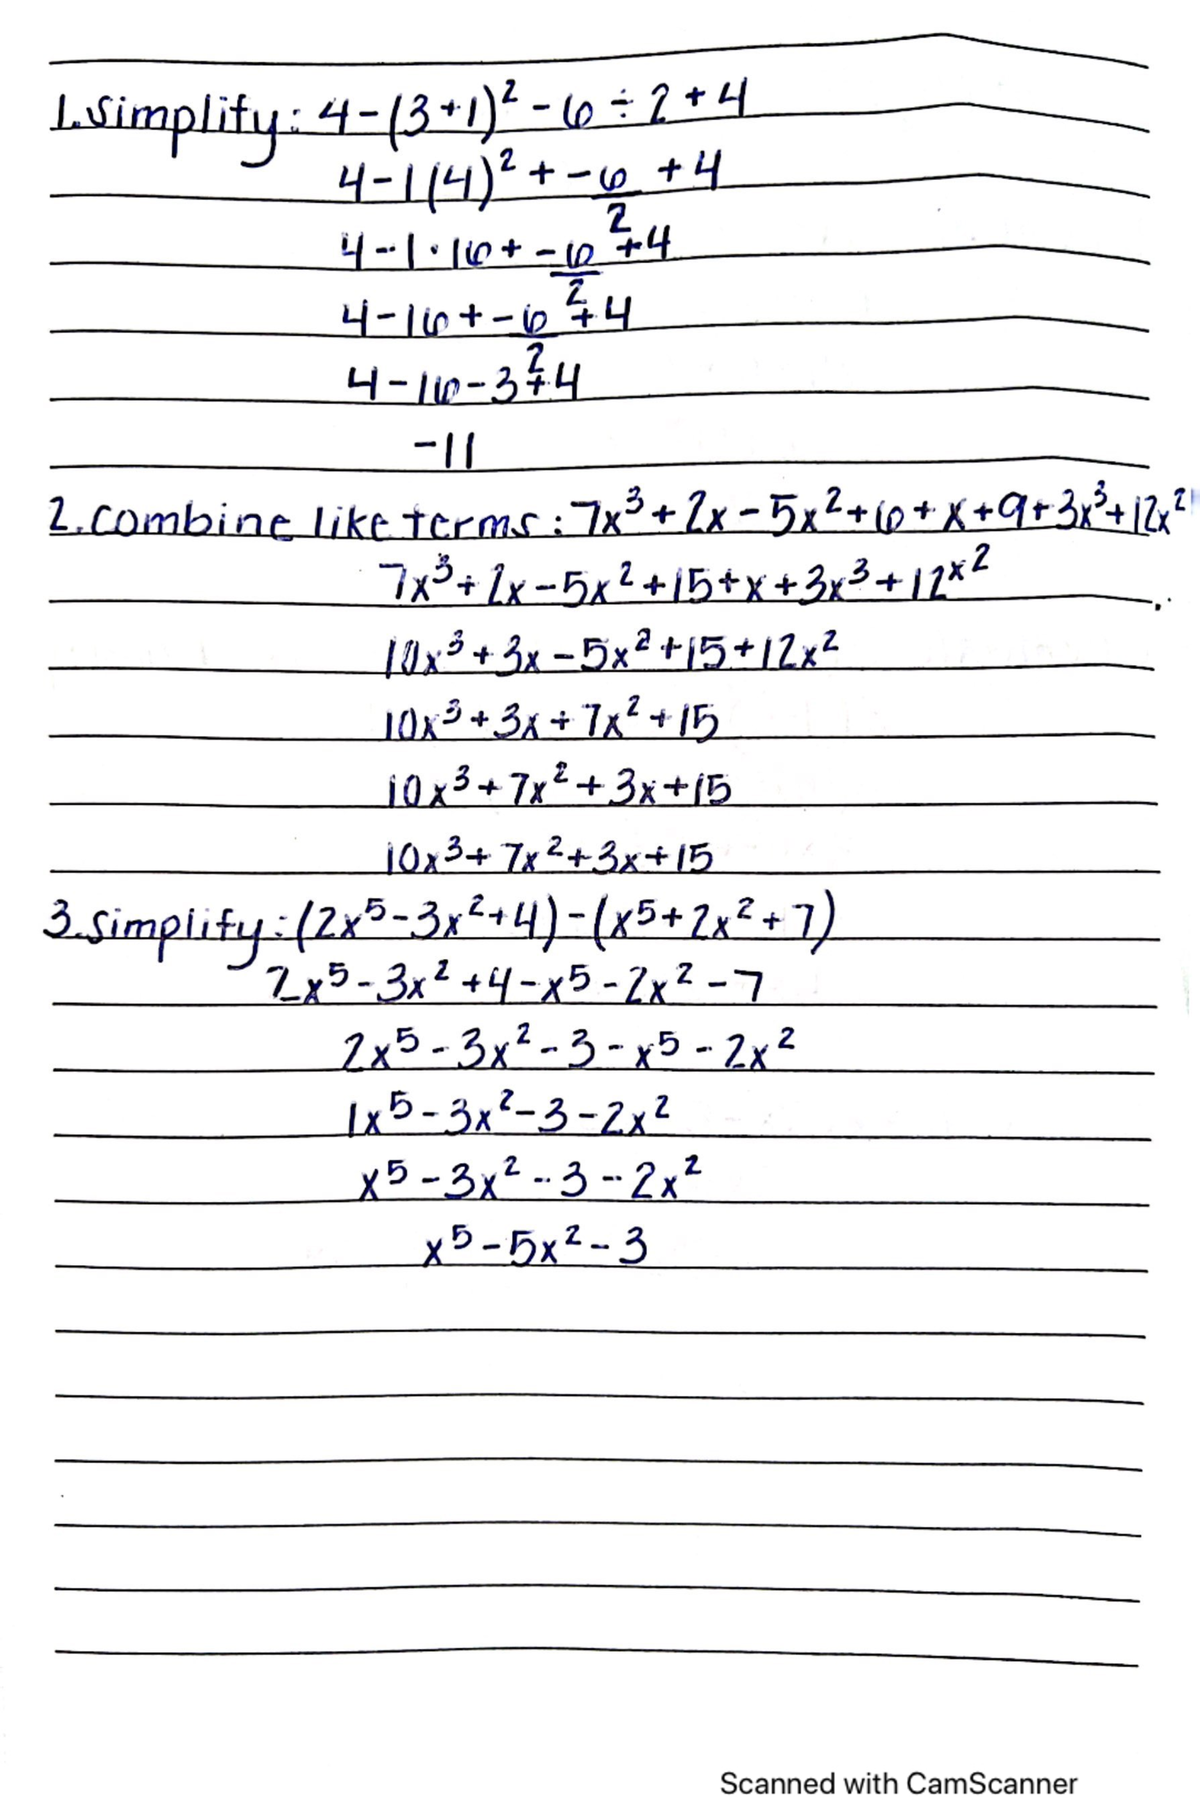 1. Simplify: 4-(3+1)² - 6 ÷ 2 + 4
4-1(4)² + -6/2 + 4
4-1·16+ -6/2 +4
4-16+-6/2 +4
4-16-3+4
-11
2. combine like terms: 7x³+2x-5x²+6+x+9+3x³+12x²
7x³+2x-5x²+15+x+3x³+12x²
10x³+3x-5x²+15+12x²
10x³+3x+7x²+15
10x³+7x²+3x+15
10x³+7x²+3x+15
3. Simplify: (2x⁵-3x²+4)-(x⁵+2x²+7)
2x⁵-3x²+4-x⁵-2x²-7
2x⁵-3x²-3-x⁵-2x²
1x⁵-3x²-3-2x²
x⁵-3x²-3-2x²
x⁵-5x²-3
Scanned with CamScanner